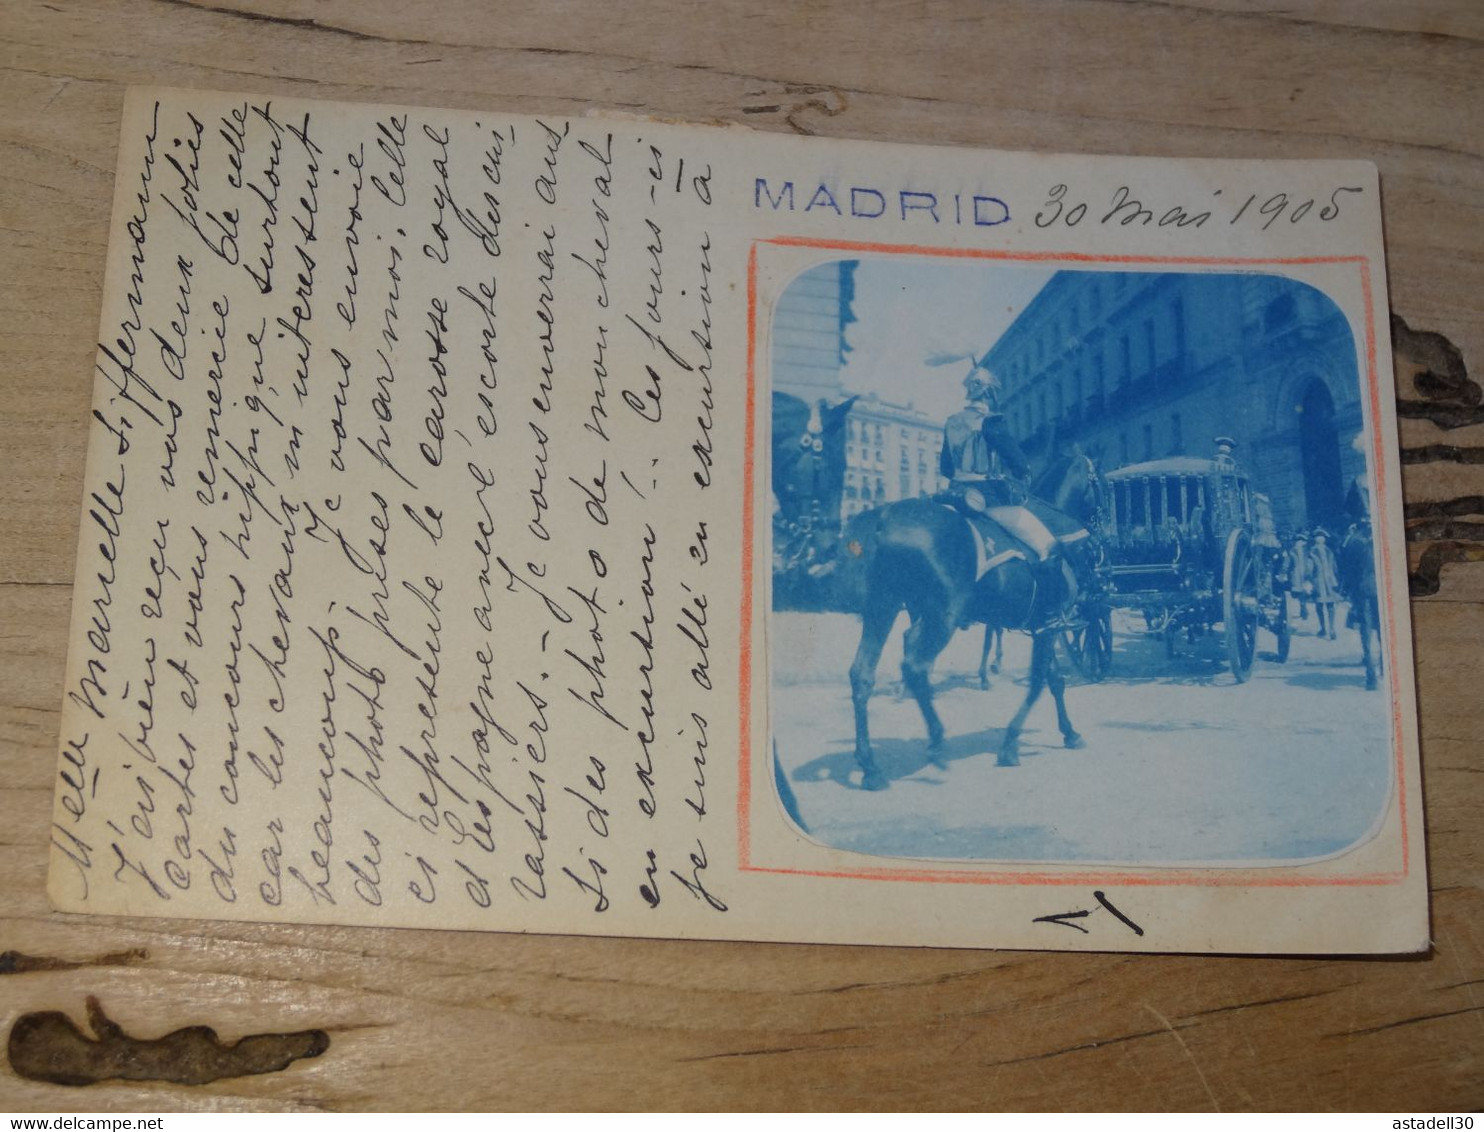 MADRID 30 Mai 1905
Melle Marcelle Siffermann
J'ai bien reçu vos deux jolies
cartes et vous remercie de celle
du concours hippique surtout
car les chevaux m'interessent
beaucoup. Je vous envoie
des photos prises par moi. Celle
ci represente le carosse royal
d'Espagne avec l'escorte des cui-
rassiers. - Je vous enverrai aus
si des photos de mon cheval
en excurstion!.. Ces jours-ci
je suis allé en excurstion a
astadell30